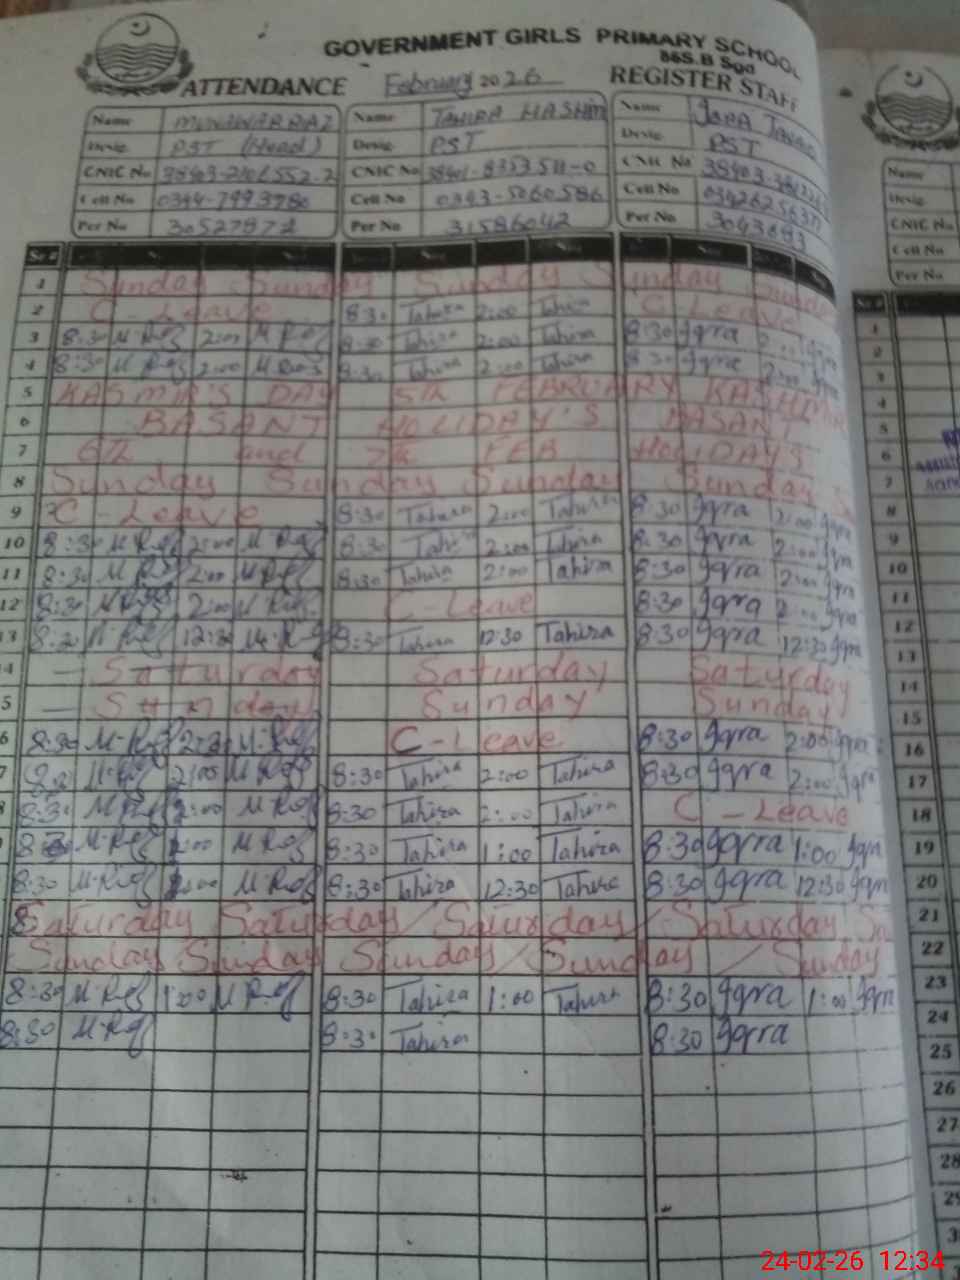 GOVERNMENT GIRLS PRIMARY SCHOOL
86S.B Sgd
ATTENDANCE February 2026 REGISTER STAFF
Name Name TAHIRA HASHIM Name
Desig PST (Head) Desig PST Desig PST
CNIC No CNIC No CNIC No
Cell No Cell No 0343-5060586 Cell No
Per No 30527872 Per No 31586042 Per No
Sr #
1 Sunday Sunday Sunday Sunday Sunday
2 C-Leave 8:30 Tahira 2:00 Tahira C-Leave
3 8:30 M.Raf 2:00 M.Raf 8:30 Tahira 2:00 Tahira 8:30 Iqra 2:00 Iqra
4 8:30 M.Raf 2:00 M.Raf 8:30 Tahira 2:00 Tahira 8:30 Iqra 2:00 Iqra
5 KASMIR'S DAY 5th FEBRUARY KASHMIR
6 BASANT HOLIDAY'S BASANT
7 6th and 7th FEB HOLIDAYS
8 Sunday Sunday Sunday Sunday Sunday
9 C-Leave 8:30 Tahira 2:00 Tahira 8:30 Iqra 2:00 Iqra
10 8:30 M.Raf 2:00 M.Raf 8:30 Tahira 2:00 Tahira 8:30 Iqra 2:00 Iqra
11 8:30 M.Raf 2:00 M.Raf 8:30 Tahira 2:00 Tahira 8:30 Iqra 2:00 Iqra
12 8:30 M.Raf 2:00 M.Raf C-Leave 8:30 Iqra 2:00 Iqra
13 8:30 M.Raf 12:30 M.Raf 8:30 Tahira 12:30 Tahira 8:30 Iqra 12:30 Iqra
14 - Saturday Saturday Saturday
5 - Sunday Sunday Sunday
6 8:30 M.Raf 2:30 M.Raf C-Leave 8:30 Iqra 2:00 Iqra
7 8:30 M.Raf 2:00 M.Raf 8:30 Tahira 2:00 Tahira 8:30 Iqra 2:00 Iqra
8:30 M.Raf 2:00 M.Raf 8:30 Tahira 2:00 Tahira C-Leave
M.Raf 1:00 M.Raf 8:30 Tahira 1:00 Tahira 8:30 Iqra 1:00 Iqra
8:30 M.Raf M.Raf 8:30 Tahira 12:30 Tahira 8:30 Iqra 12:30 Iqra
Saturday Saturday / Saturday / Saturday
Sunday Sunday Sunday / Sunday / Sunday
8:30 M.Raf 1:00 M.Raf 8:30 Tahira 1:00 Tahira 8:30 Iqra 1:00 Iqra
8:30 M.Raf 8:30 Tahira 8:30 Iqra
Name
Desig
CNIC No
Cell No
Per No
Sr #
1
2
3
4
5
6
7
8
9
10
11
12
13
14
15
16
17
18
19
20
21
22
23
24
25
26
27
28
29
24-02-26 12:34